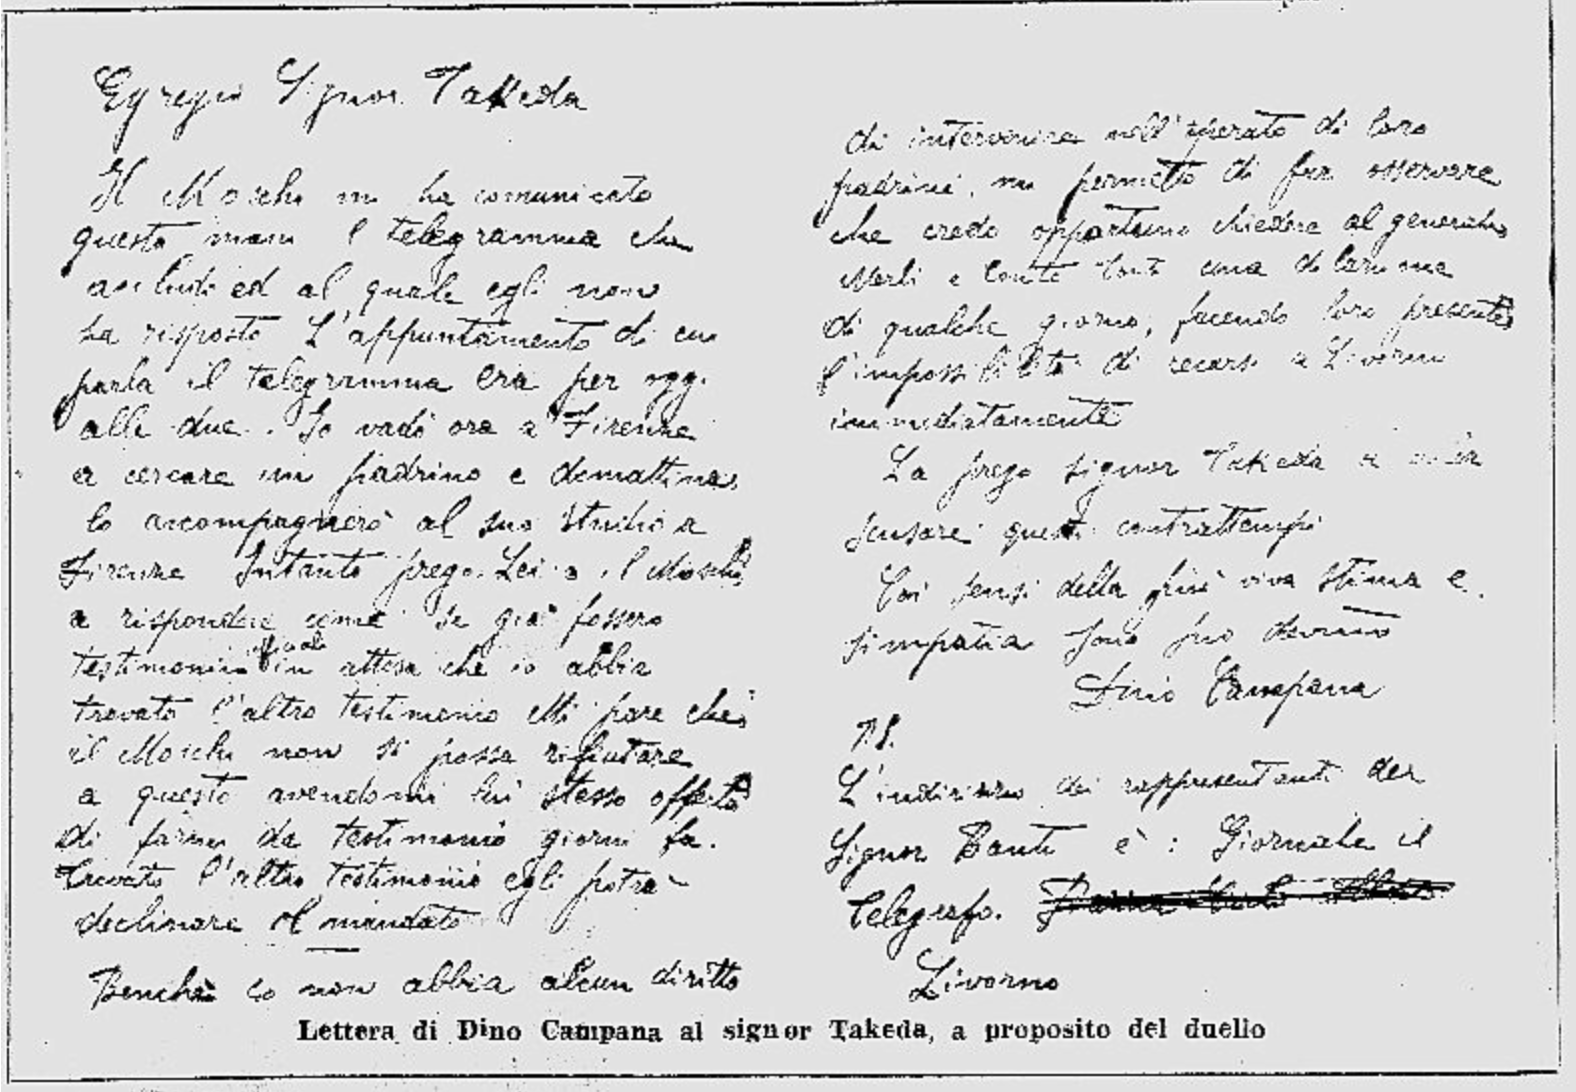 Egregio Signor Takeda
Il Moschi mi ha comunicato
questa mani l telegramma che
accludo ed al quale egli non
ha risposto L'appuntamento di cui
parla il telegramma era per oggi
alle due. Io vado ora a Firenze
a cercare un padrino e domattina
lo accompagnerò al suo studio a
Firenze Intanto prego Lei e il Moschi
a rispondere come se già fossero
testimoni ufficiali in attesa che io abbia
trovato l'altro testimonio Mi pare che
il Moschi non si possa rifiutare
a questo avendomi lui stesso offerto
di farmi da testimonio giorni fa.
Trovato l'altro testimonio egli potrà
declinare il mandato
Benchè io non abbia alcun diritto
di intervenire nell'operato di loro
padrini, mi permetto di far osservare
che credo opportuno chiedere al generale
Merli e Conte una dilazione
di qualche giorno, facendo loro presente
l'impossibilità di recarsi a Livorno
immediatamente
La prego signor Takeda a voler
scusare questi contrattempi
Coi sensi della più viva stima e
simpatia sono suo devoto
Dino Campana
P.S.
L'indirizzo dei rappresentanti del
Signor Banti è: Giornale il
Telegrafo.
Livorno
Lettera di Dino Campana al signor Takeda, a proposito del duello